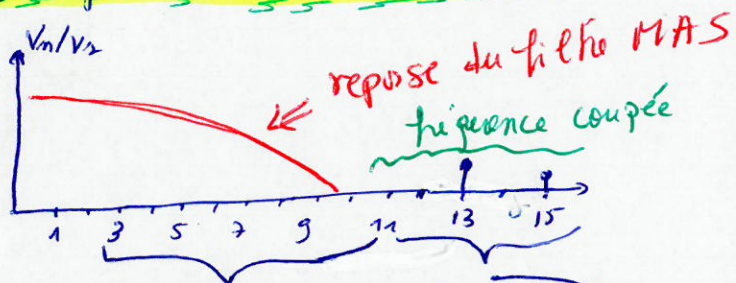 Vn/V1
reponse du filtre MAS
fréquence coupée
1 3 5 7 9 11 13 15